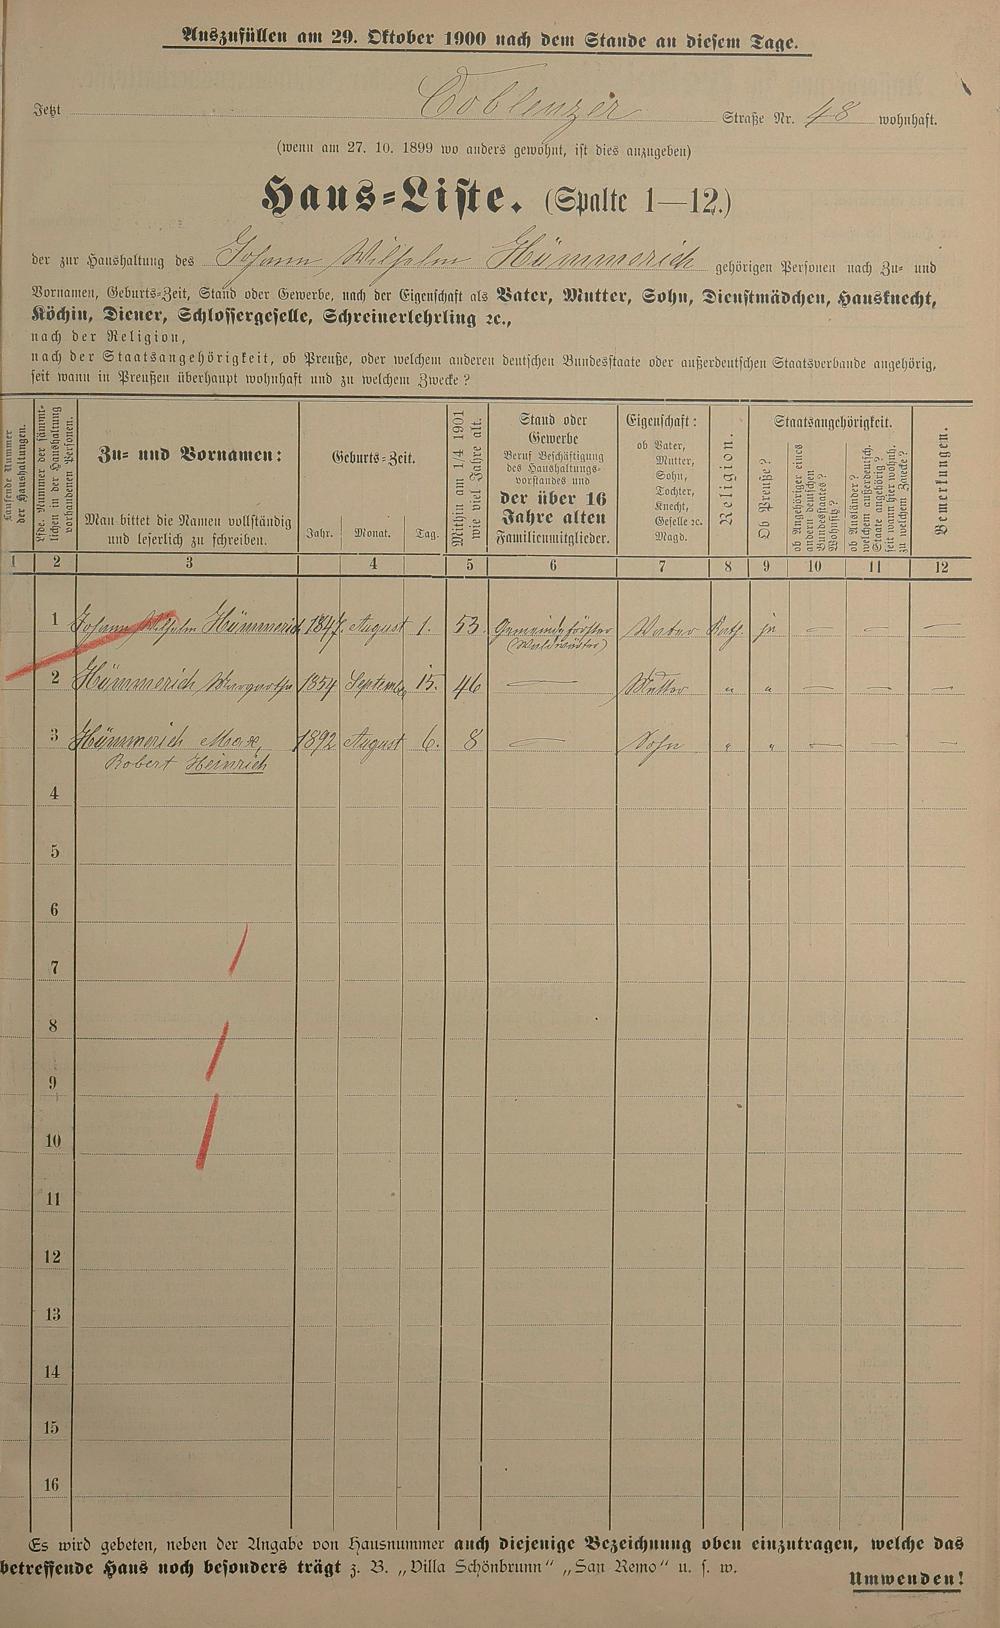 Auszufüllen am 29. Oktober 1900 nach dem Stande an diesem Tage.
Jetzt Coblenzer Straße Nr. 48 wohnhaft.
(wenn am 27. 10. 1899 wo anders gewohnt, ist dies anzugeben)
Haus-Liste. (Spalte 1—12.)
der zur Haushaltung des Johann Wilhelm Hümmerich gehörigen Personen nach Zu- und
Vornamen, Geburts-Zeit, Stand oder Gewerbe, nach der Eigenschaft als Vater, Mutter, Sohn, Dienstmädchen, Hausknecht,
Köchin, Diener, Schlossergeselle, Schreinerlehrling ꝛc.,
nach der Religion,
nach der Staatsangehörigkeit, ob Preuße, oder welchem anderen deutschen Bundesstaate oder außerdeutschen Staatsverbande angehörig,
seit wann in Preußen überhaupt wohnhaft und zu welchem Zwecke?
Laufende Nummer
der Haushaltungen.
Lfde. Nummer der sämmt-
lichen in der Haushaltung
vorhandenen Personen.
Zu- und Vornamen:
Man bittet die Namen vollständig
und leserlich zu schreiben.
Geburts-Zeit.
Jahr. Monat. Tag.
Mithin am 1/4 1901
wie viel Jahre alt.
Stand oder
Gewerbe
Beruf Beschäftigung
des Haushaltungs-
vorstandes und
der über 16
Jahre alten
Familienmitglieder.
Eigenschaft:
ob Vater,
Mutter,
Sohn,
Tochter,
Knecht,
Geselle ꝛc.
Magd.
Religion.
Staatsangehörigkeit.
Ob Preuße?
ob Angehöriger eines
andern deutschen
Bundesstaates?
Wohnsitz?
ob Ausländer?
welchem außerdeutsch.
Staate angehörig?
seit wann hier wohnh.
zu welchem Zwecke?
Bemerkungen.
1 2 3 4 5 6 7 8 9 10 11 12
1 Johann Wilhelm Hümmerich 1847. August 1. 53 Gemeindeförster Vater Kath. ja — — —
(Waldwärter)
2 Hümmerich Margaretha 1854 September 15. 46 — Mutter " " — — —
3 Hümmerich Max, 1892 August 6. 8 — Sohn " " — — —
Robert Heinrich
4
5
6
7
8
9
10
11
12
13
14
15
16
Es wird gebeten, neben der Angabe von Hausnummer auch diejenige Bezeichnung oben einzutragen, welche das
betreffende Haus noch besonders trägt z. B. „Villa Schönbrunn" „San Remo" u. s. w.
Umwenden!